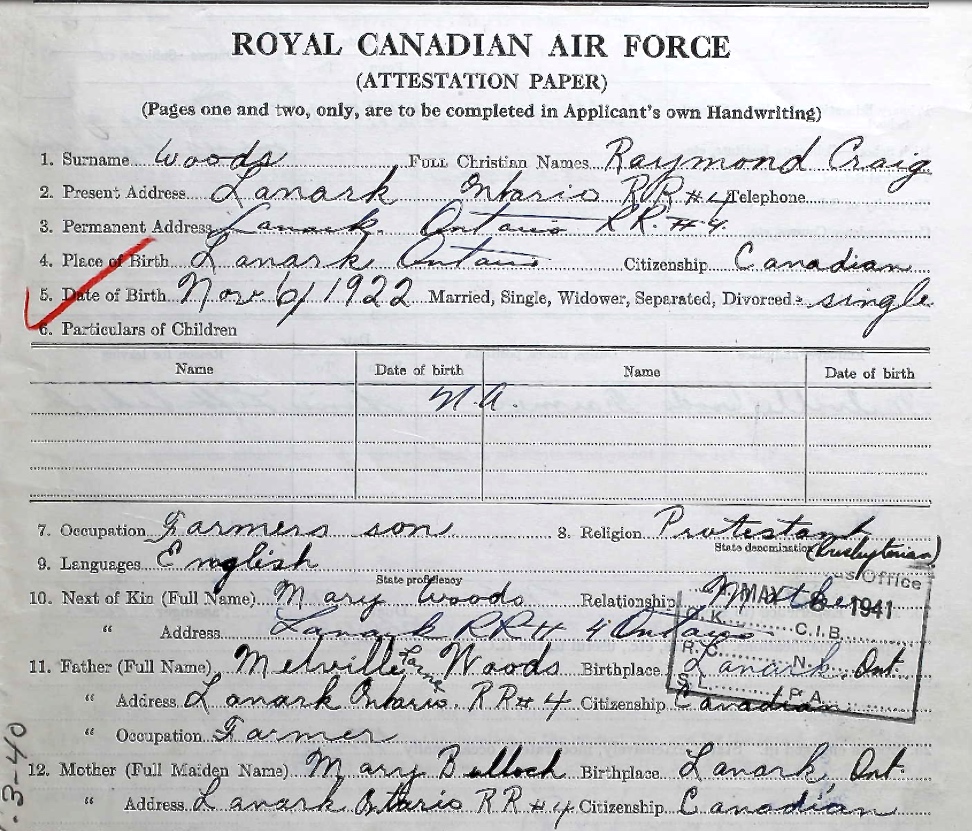 ROYAL CANADIAN AIR FORCE
(ATTESTATION PAPER)
(Pages one and two, only, are to be completed in Applicant's own Handwriting)
1. Surname Woods Full Christian Names Raymond Craig
2. Present Address Lanark Ontario RR #4 Telephone
3. Permanent Address Lanark. Ontario RR. #4.
4. Place of Birth Lanark Ontario Citizenship Canadian
5. Date of Birth Nov 6/1922 Married, Single, Widower, Separated, Divorced single
6. Particulars of Children
Name Date of birth Name Date of birth
N.A.
7. Occupation Farmers son 8. Religion Protestant
State denomination (Presbyterian)
9. Languages English
State proficiency
10. Next of Kin (Full Name) Mary Woods Relationship Mother
" Address Lanark RR# 4 Ontario
Office
MAY 1941
O.K. C.I.B.
R.C. N.
P.A.
11. Father (Full Name) Melville Woods Birthplace Lanark, Ont.
" Address Lanark Ontario. RR# 4 Citizenship Canadian
" Occupation Farmer
12. Mother (Full Maiden Name) Mary Bulloch Birthplace Lanark Ont.
" Address Lanark Ontario RR #4 Citizenship Canadian
.3-40